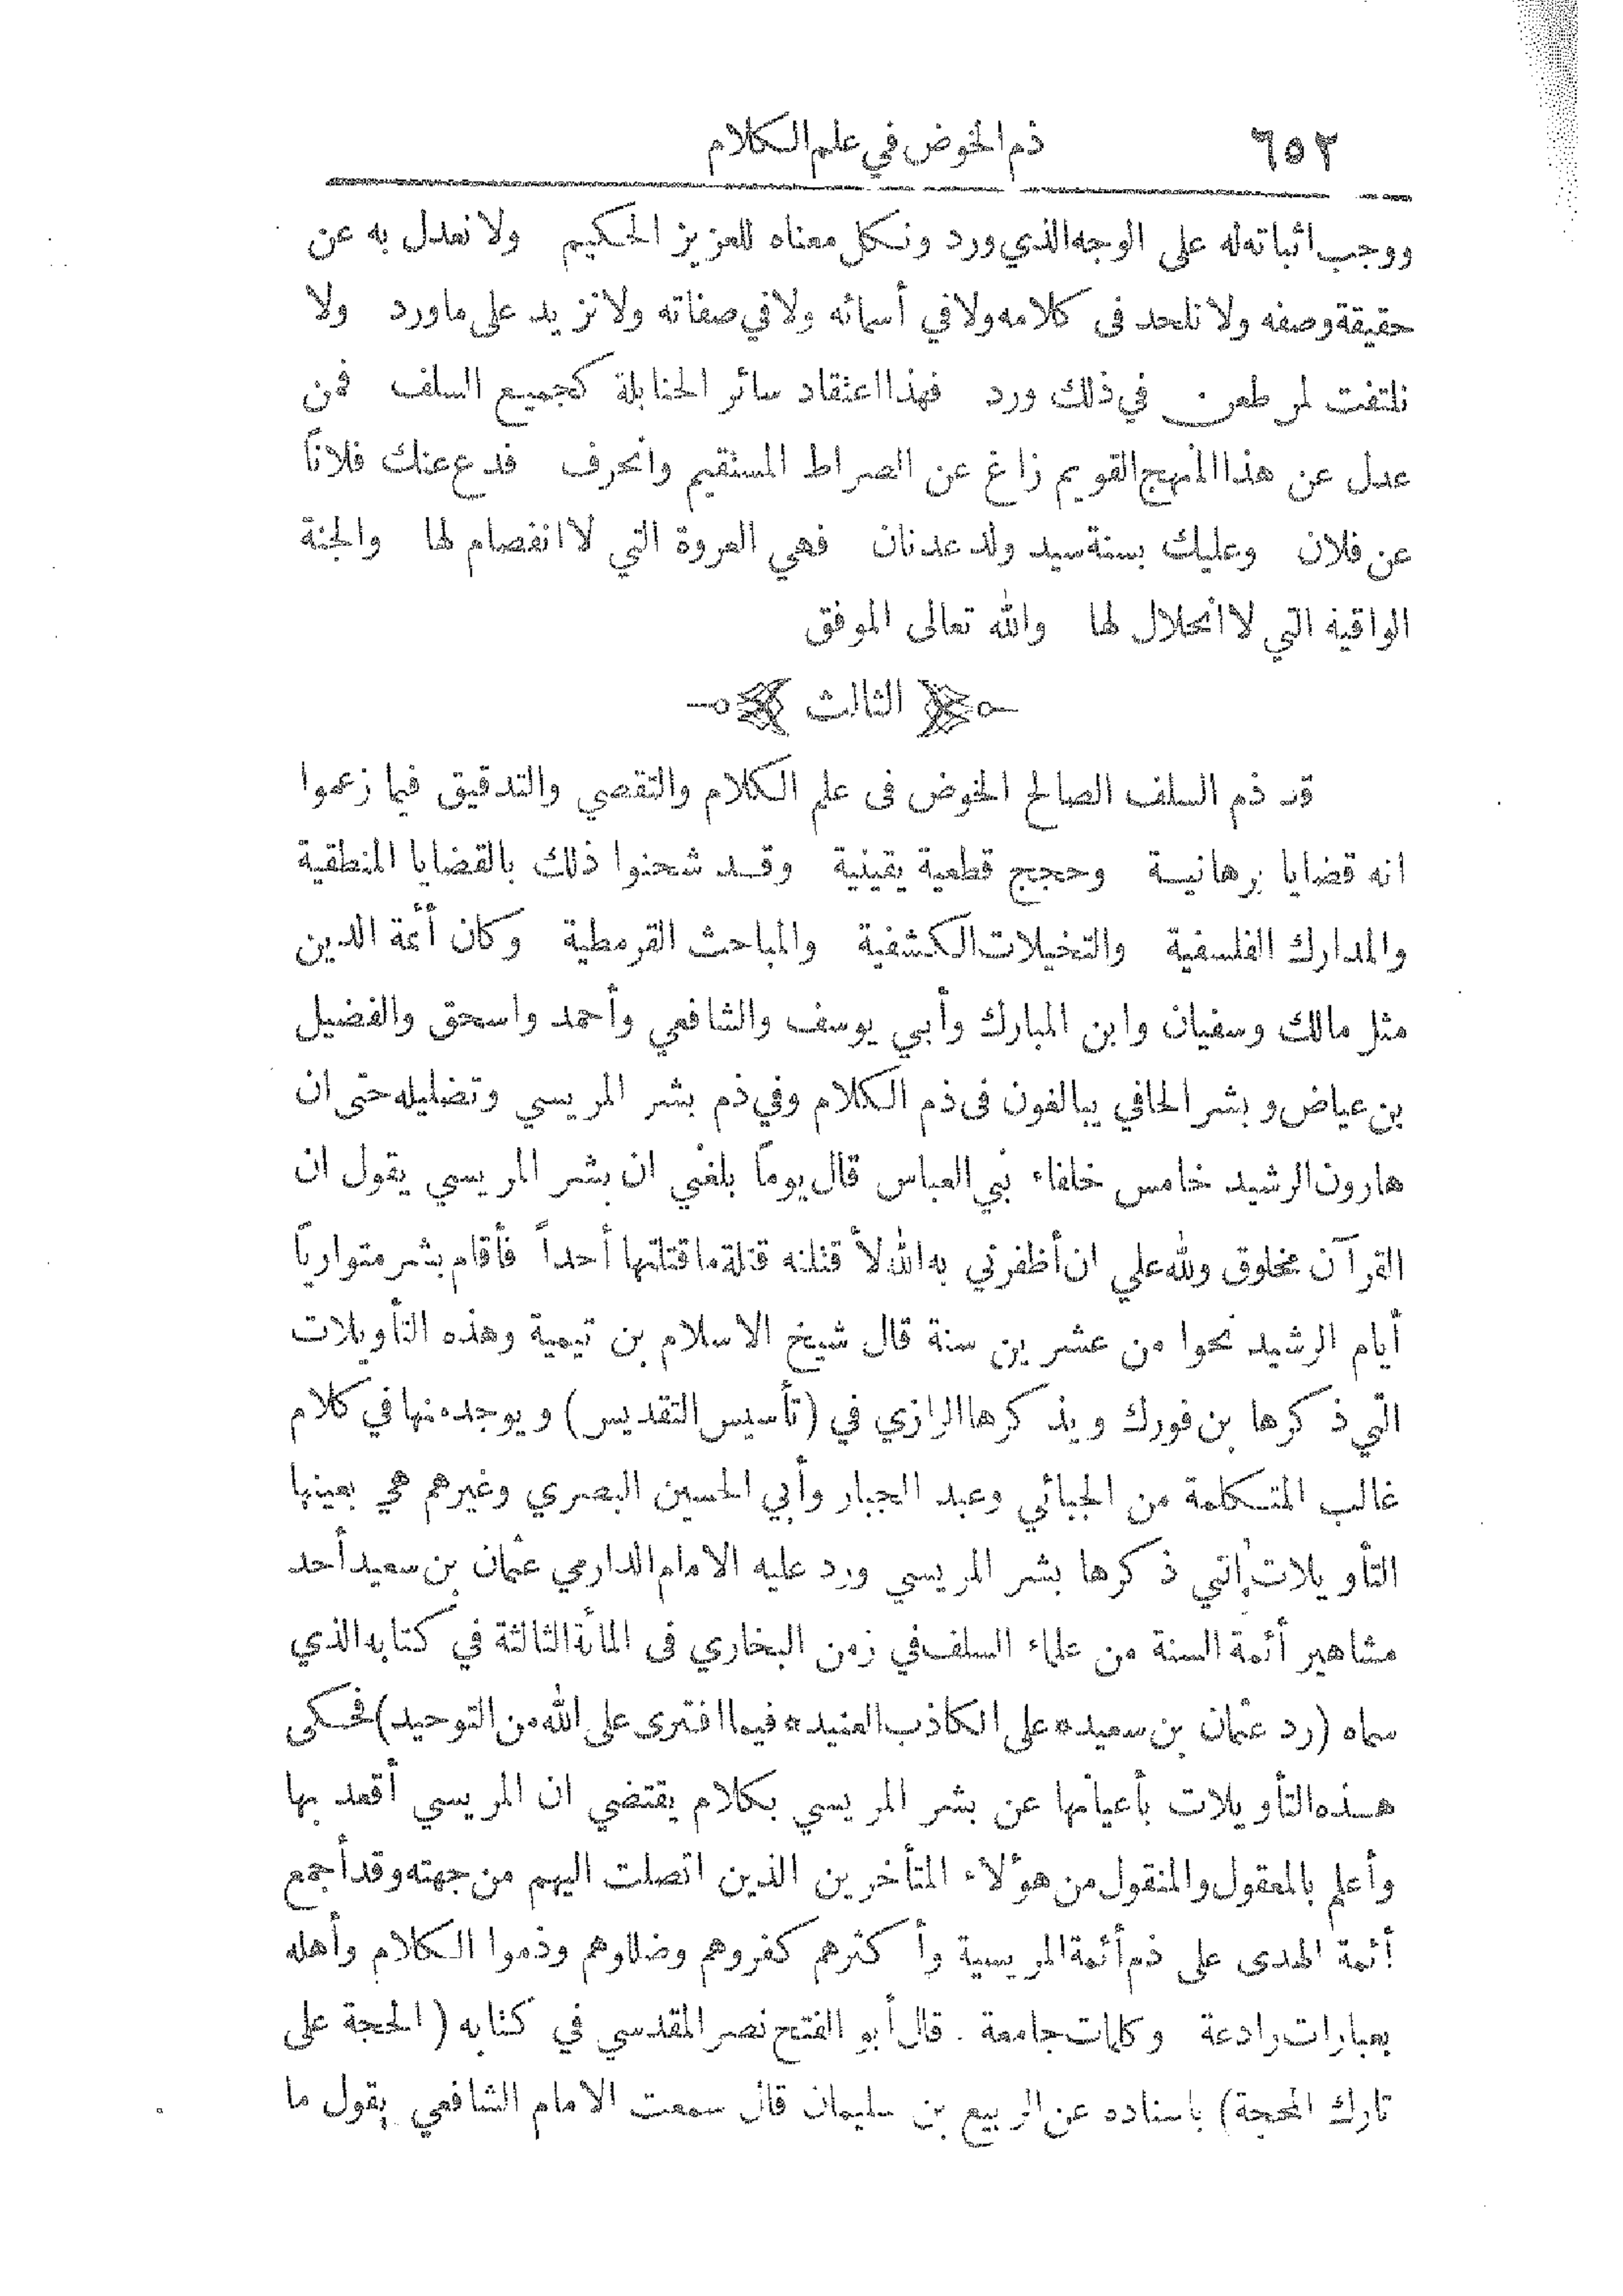 ٦٥٢ ذم الخوض في علم الكلام
ووجب اثباته له على الوجه الذي ورد ونكل معناه للعزيز الحكيم ولا نعدل به عن
حقيقة وصفه ولا نلحد فى كلامه ولا في أسمائه ولا في صفاته ولا نزيد على ما ورد ولا
نلتفت لمن طعن في ذلك ورد فهذا اعتقاد سائر الحنابلة كجميع السلف فمن
عدل عن هذا المنهج القويم زاغ عن الصراط المستقيم وانحرف فدع عنك فلاناً
عن فلان وعليك بسنة سيد ولد عدنان فهي العروة التي لا انفصام لها والجنة
الواقية التي لا انحلال لها والله تعالى الموفق
الثالث
قد ذم السلف الصالح الخوض فى علم الكلام والتقصي والتدقيق فيما زعموا
انه قضايا برهانية وحجج قطعية يقينية وقد شحنوا ذلك بالقضايا المنطقية
والمدارك الفلسفية والتخيلات الكشفية والمباحث القرمطية وكان أئمة الدين
مثل مالك وسفيان وابن المبارك وأبي يوسف والشافعي وأحمد واسحق والفضيل
بن عياض وبشر الحافي يبالغون فى ذم الكلام وفي ذم بشر المريسي وتضليله حتى ان
هارون الرشيد خامس خلفاء بني العباس قال يوماً بلغني ان بشر المريسي يقول ان
القرآن مخلوق ولله علي ان أظفرني به الله لأقتلنه قتلة ما قتلتها أحداً فأقام بشر متوارياً
أيام الرشيد نحوا من عشرين سنة قال شيخ الاسلام بن تيمية وهذه التأويلات
التي ذكرها بن فورك ويذكرها الرازي في (تأسيس التقديس) ويوجد منها في كلام
غالب المتكلمة من الجبائي وعبد الجبار وأبي الحسين البصري وغيرهم هي بعينها
التأويلات التي ذكرها بشر المريسي ورد عليه الامام الدارمي عثمان بن سعيد أحد
مشاهير أئمة السنة من علماء السلف في زمن البخاري فى المائة الثالثة في كتابه الذي
سماه (رد عثمان بن سعيد * على الكاذب العنيد * فيما افترى على الله من التوحيد) فحكى
هذه التأويلات بأعيانها عن بشر المريسي بكلام يقتضي ان المريسي أقعد بها
وأعلم بالمعقول والمنقول من هؤلاء المتأخرين الذين اتصلت اليهم من جهته وقد أجمع
أئمة الهدى على ذم أئمة المريسية وأكثرهم كفروهم وضللوهم وذموا الكلام وأهله
بعبارات رادعة وكلمات جامعة . قال أبو الفتح نصر المقدسي في كتابه (الحجة على
تارك المحجة) باسناده عن الربيع بن سليمان قال سمعت الامام الشافعي يقول ما